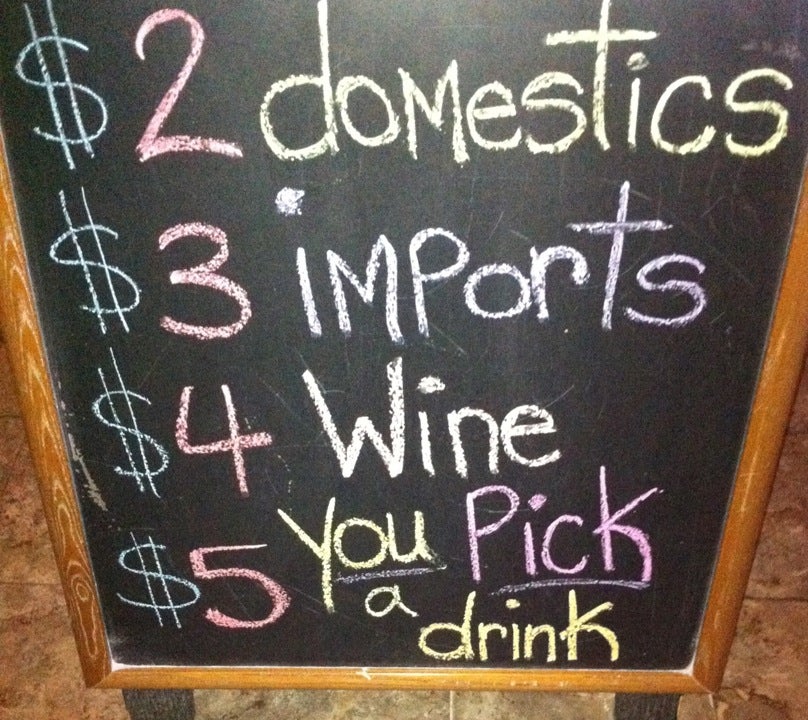 $2 domestics
$3 imports
$4 Wine
$5 You Pick
a
drink